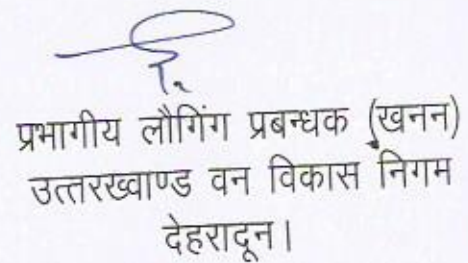 प्रभागीय लौगिंग प्रबन्धक (खनन)
उत्तरख्वाण्ड वन विकास निगम
देहरादून।